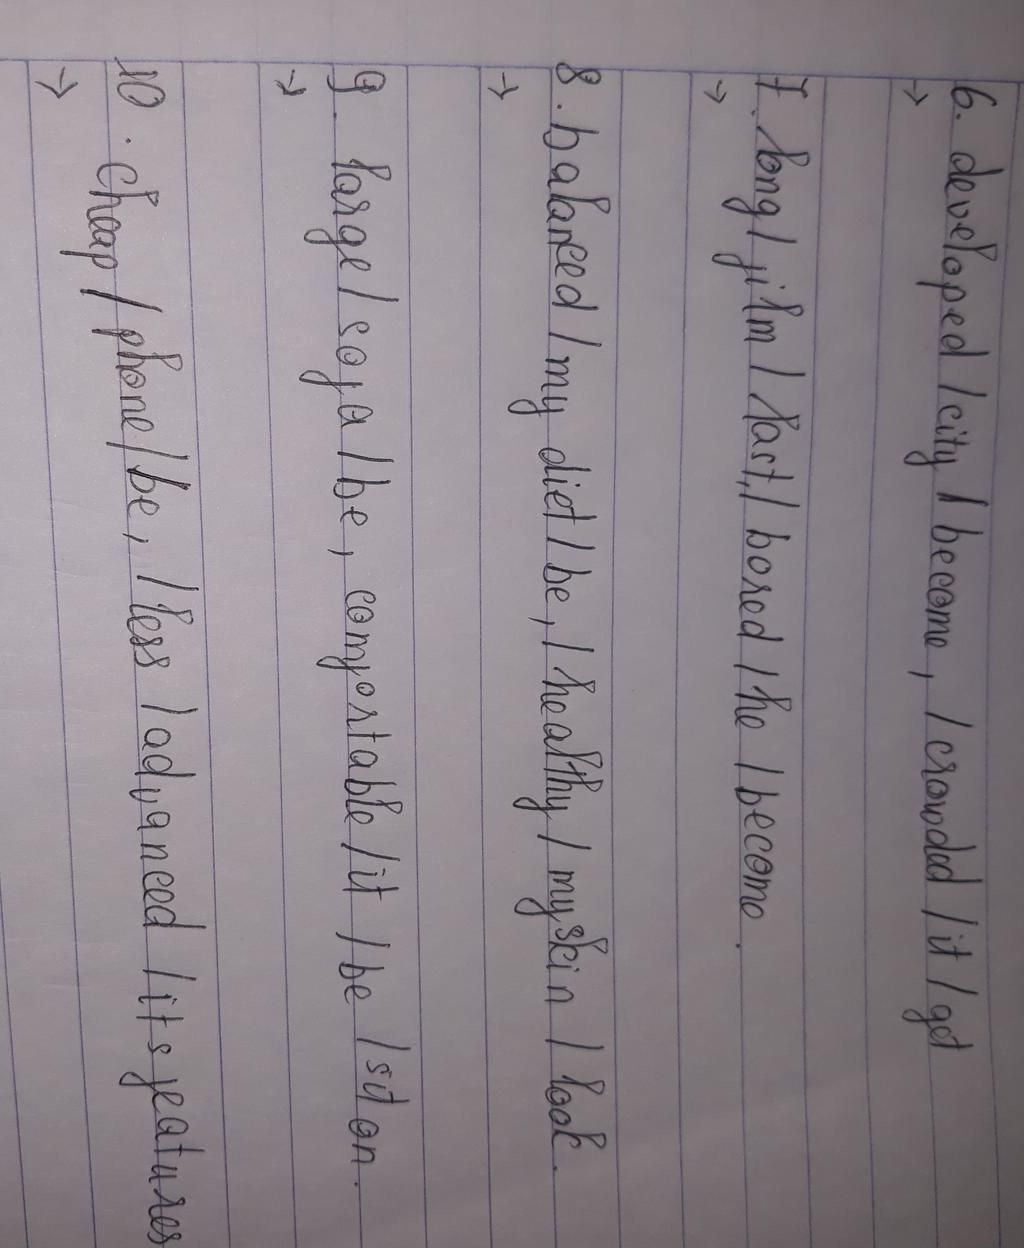 6. developed / city / become, / crowded / it / get
→
7. long / film / last, / bored / he / become.
→
8. balanced / my diet / be, / healthy / my skin / look.
→
9. large / sofa / be, comfortable / it / be / sit on.
→
10. cheap / phone / be, / less / advanced / its features
→